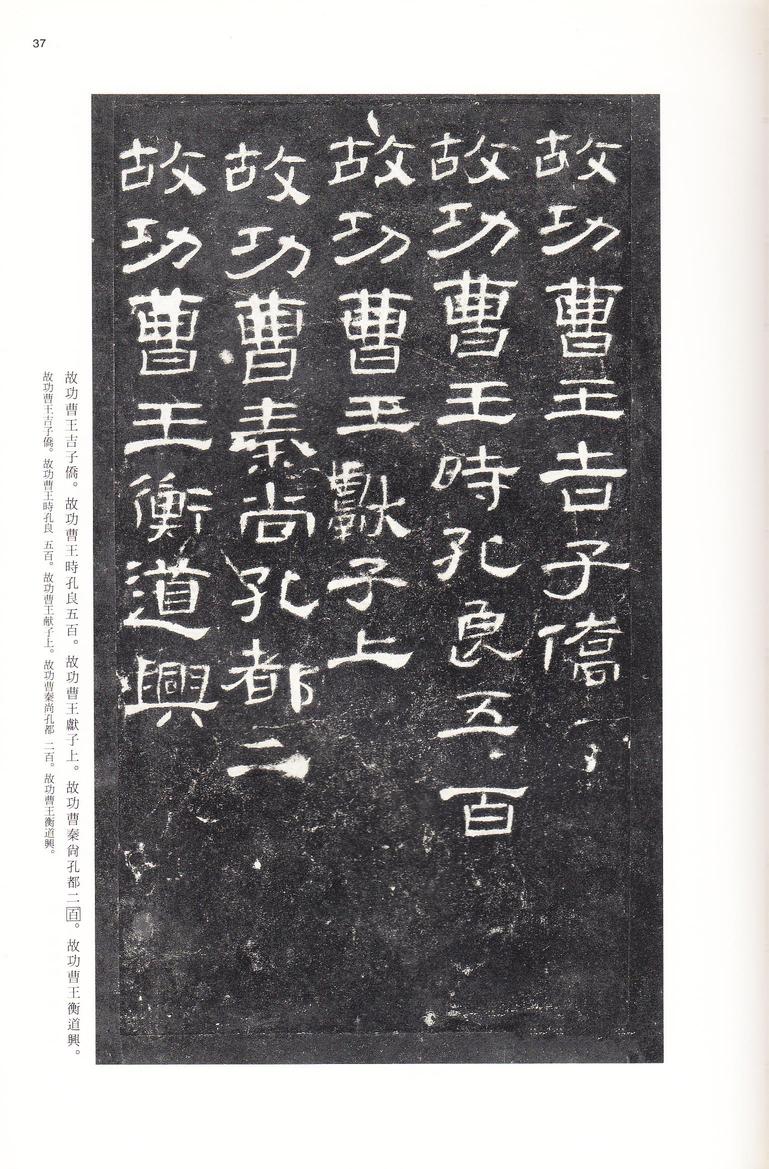 37
故功曹王吉子僑
故功曹王時孔良五百
故功曹王獻子上
故功曹秦尚孔都二
故功曹王衡道興
故功曹王吉子僑。故功曹王時孔良五百。故功曹王獻子上。故功曹秦尙孔都二百。故功曹王衡道興。
故功曹王吉子僑。故功曹王時孔良 五百。故功曹王献子上。故功曹秦尚孔都 二百。故功曹王衡道興。